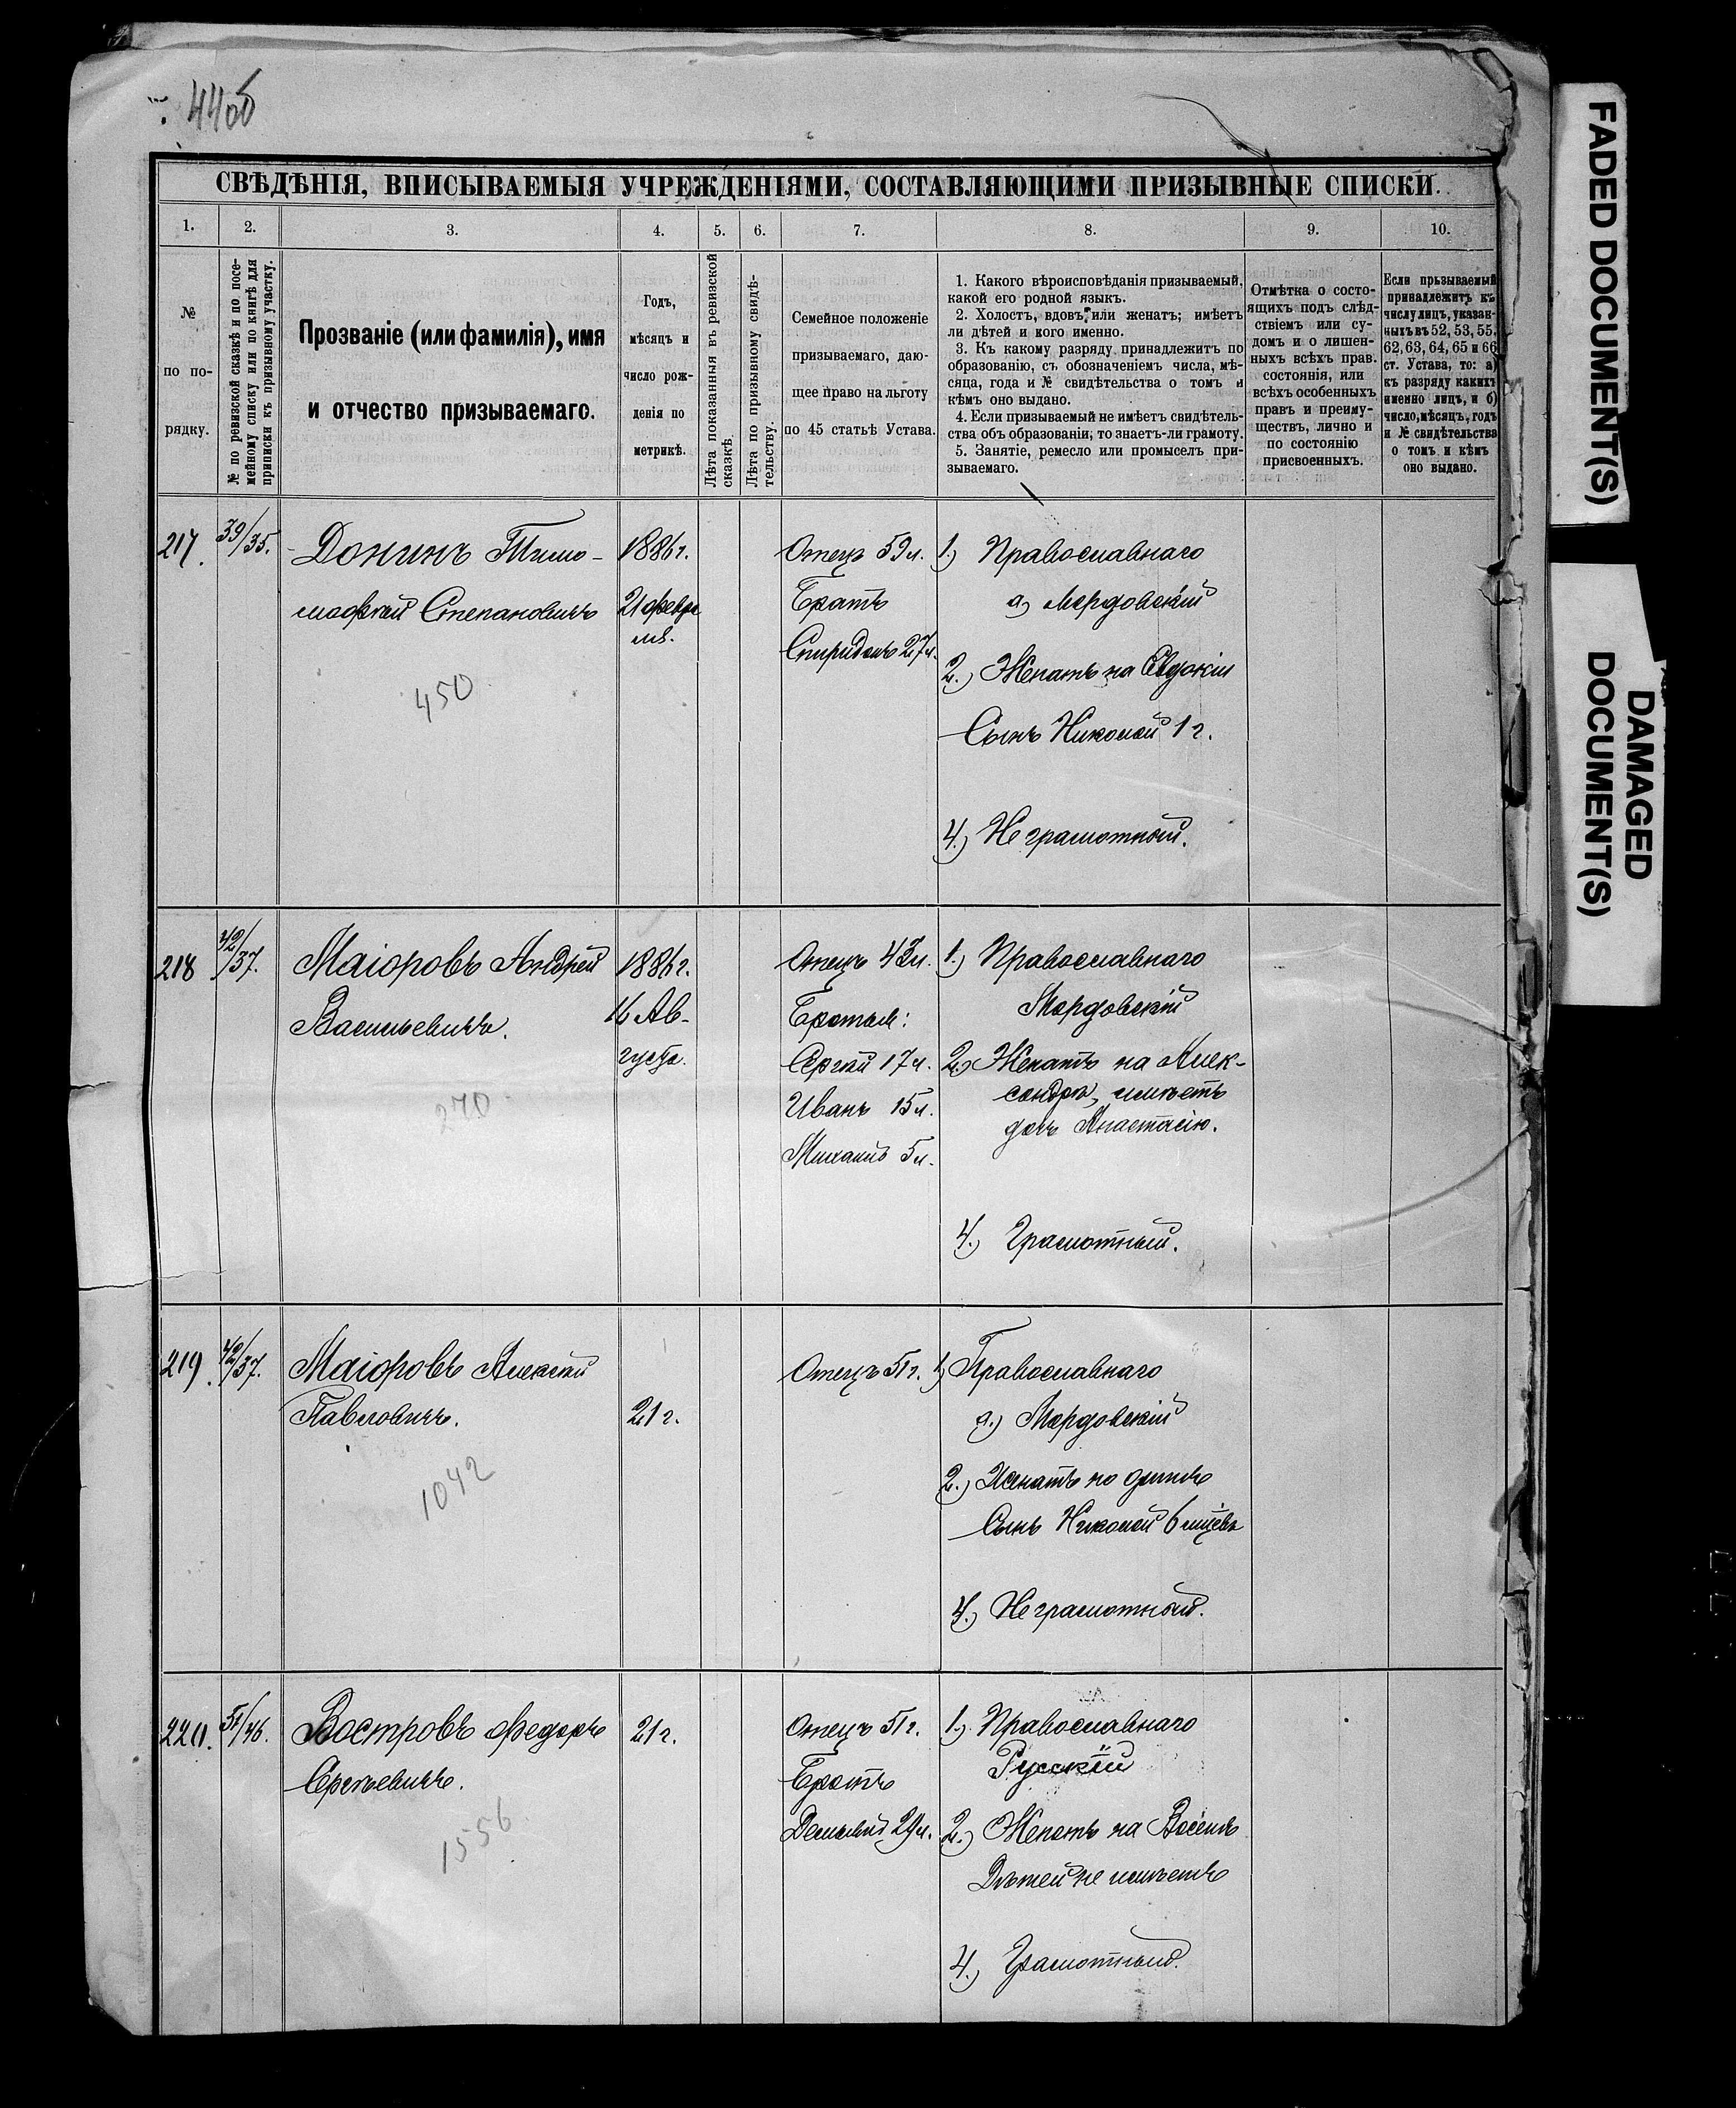 44об
СВѢДѢНІЯ, ВПИСЫВАЕМЫЯ УЧРЕЖДЕНІЯМИ, СОСТАВЛЯЮЩИМИ ПРИЗЫВНЫЕ СПИСКИ.
1. 2. 3. 4. 5. 6. 7. 8. 9. 10.
№
по по-
рядку.
№ по ревизской сказкѣ и по посе-
мейному списку или по книгѣ для
приписки къ призывному участку.
Прозваніе (или фамилія), имя
и отчество призываемаго.
Годъ,
мѣсяцъ и
число рож-
денія по
метрикѣ.
Лѣта показанныя въ ревизской
сказкѣ.
Лѣта по призывному свидѣ-
тельству.
Семейное положеніе
призываемаго, даю-
щее право на льготу
по 45 статьѣ Устава.
1. Какого вѣроисповѣданія призываемый,
какой его родной языкъ.
2. Холостъ, вдовъ или женатъ; имѣетъ
ли дѣтей и кого именно.
3. Къ какому разряду принадлежитъ по
образованію, съ обозначеніемъ числа, мѣ-
сяца, года и № свидѣтельства о томъ и
кѣмъ оно выдано.
4. Если призываемый не имѣетъ свидѣтель-
ства объ образованіи, то знаетъ-ли грамоту.
5. Занятіе, ремесло или промыселъ при-
зываемаго.
Отмѣтка о состо-
ящихъ подъ слѣд-
ствіемъ или су-
домъ и о лишен-
ныхъ всѣхъ прав.
состоянія, или
всѣхъ особенныхъ
правъ и преиму-
ществъ, лично и
по состоянію
присвоенныхъ.
Если призываемый
принадлежитъ къ
числу лицъ, указан-
ныхъ въ 52, 53, 55,
62, 63, 64, 65 и 66
ст. Устава, то: а)
къ разряду какихъ
именно лицъ, и б)
число, мѣсяцъ, годъ
и № свидѣтельства
о томъ и кѣмъ
оно выдано.
217. 39/35.
Донинъ Тимо-
мофей Степановичъ
450
1886г.
21 февра
ля.
Отецъ 59л.
Братъ
Спиридонъ 27л.
1.) Православнаго
а) Мордовскій
2.) Женатъ на Евдокіи
Сынъ Николай 1 г.
4.) Неграмотный.
218 42/37.
Маіоровъ Андрей
Васильевичъ.
270
1886г.
16 Ав-
густа.
Отецъ 43л.
Братья:
Сергѣй 17л.
Иванъ 15л.
Михаилъ 5л.
1.) Православнаго
Мордовскій
2.) Женатъ на Алек-
сандрѣ, имѣетъ
дочь Анастасію.
4.) Грамотный.
219. 42/37.
Маіоровъ Алексѣй
Павловичъ.
1042
21г.
Отецъ 51г.
1.) Православнаго
а.) Мордовскій
2.) Женатъ на
Сынъ Николай 6 мцевъ
4.) Неграмотный.
220. 51/46.
Востровъ Федоръ
Сергѣевичъ.
1556
21г.
Отецъ 51г.
Братъ
29л.
1.) Православнаго
Русскій
2.) Женатъ на
Дѣтей не имѣетъ
4.) Грамотный.
FADED DOCUMENT(S)
DAMAGED
DOCUMENT(S)